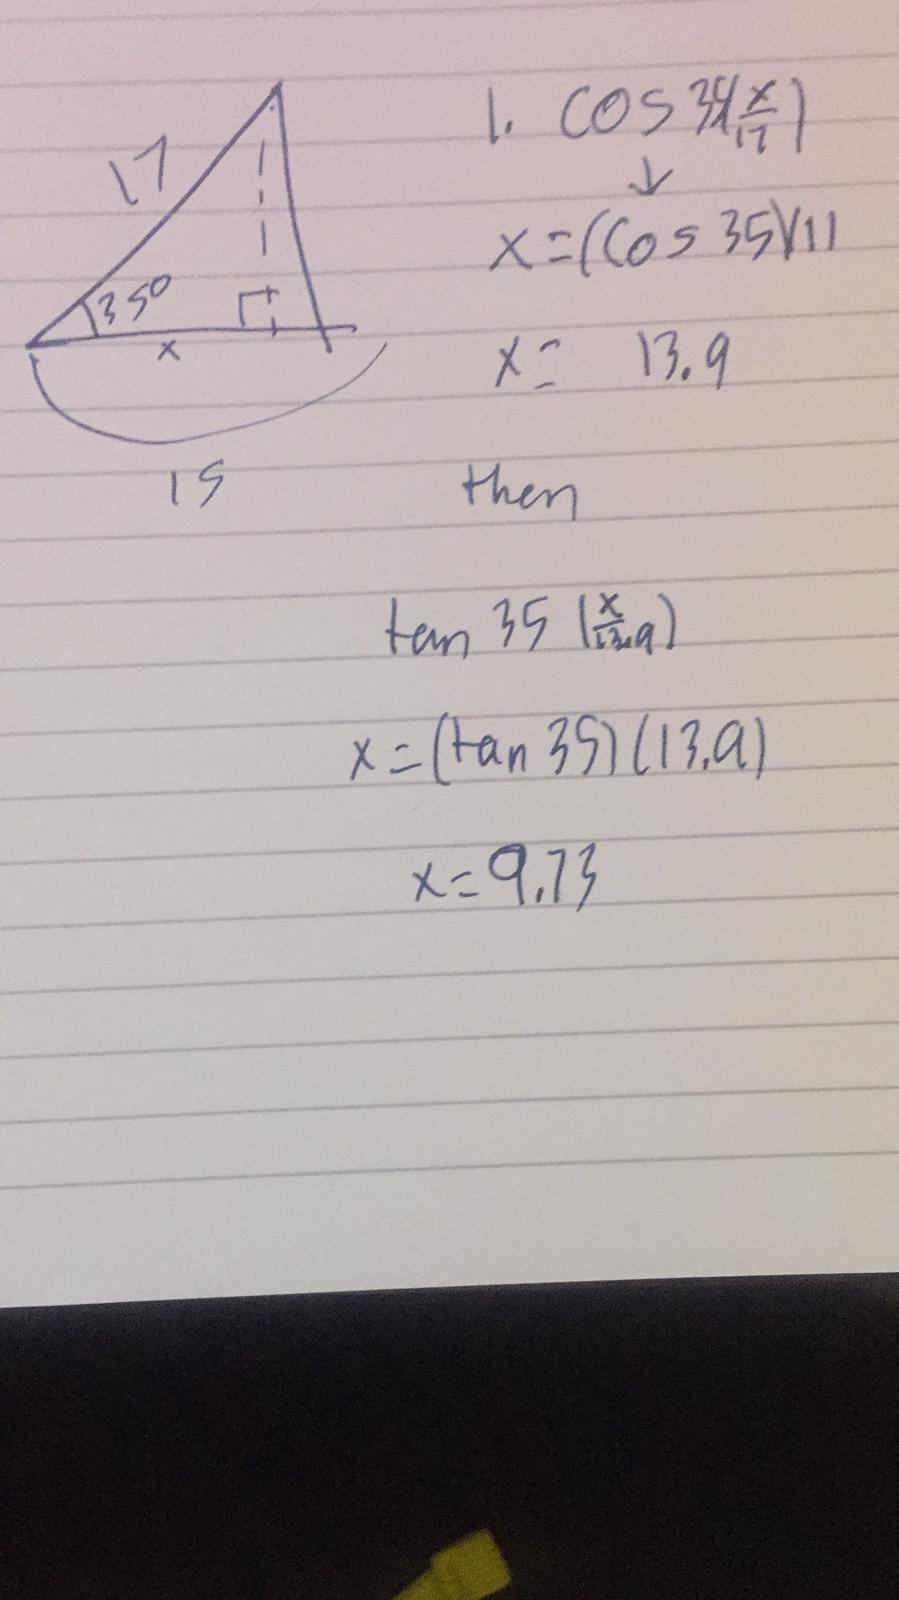 17
35°
x
15
1. cos 35(x/17)
↓
x=(cos 35)(17
x= 13.9
then
tan 35 (x/13.9)
x=(tan 35)(13.9)
x=9.73